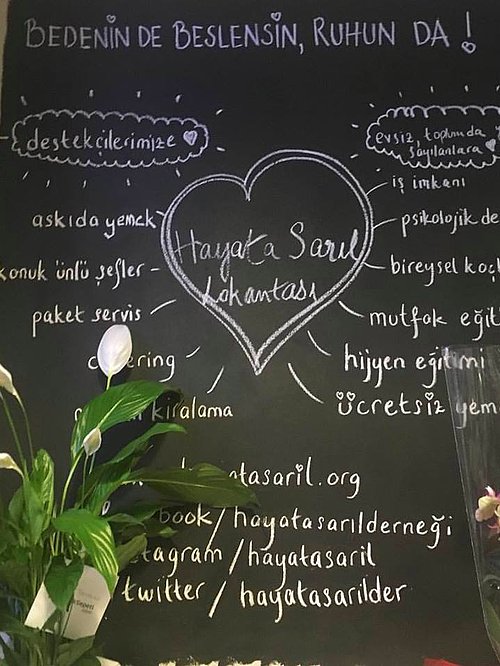 BEDENİN DE BESLENSİN, RUHUN DA!
destekçilerimize
evsiz, toplumda
sayılanlara
Hayata Sarıl
Lokantası
askıda yemek
konuk ünlü şefler
paket servis
kiralama
iş imkanı
psikolojik de
bireysel koç
mutfak eğit
hijyen eğitimi
ücretsiz yem
tasaril.org
book/hayatasarılderneği
tagram/hayatasaril
twitter/hayatasarilder